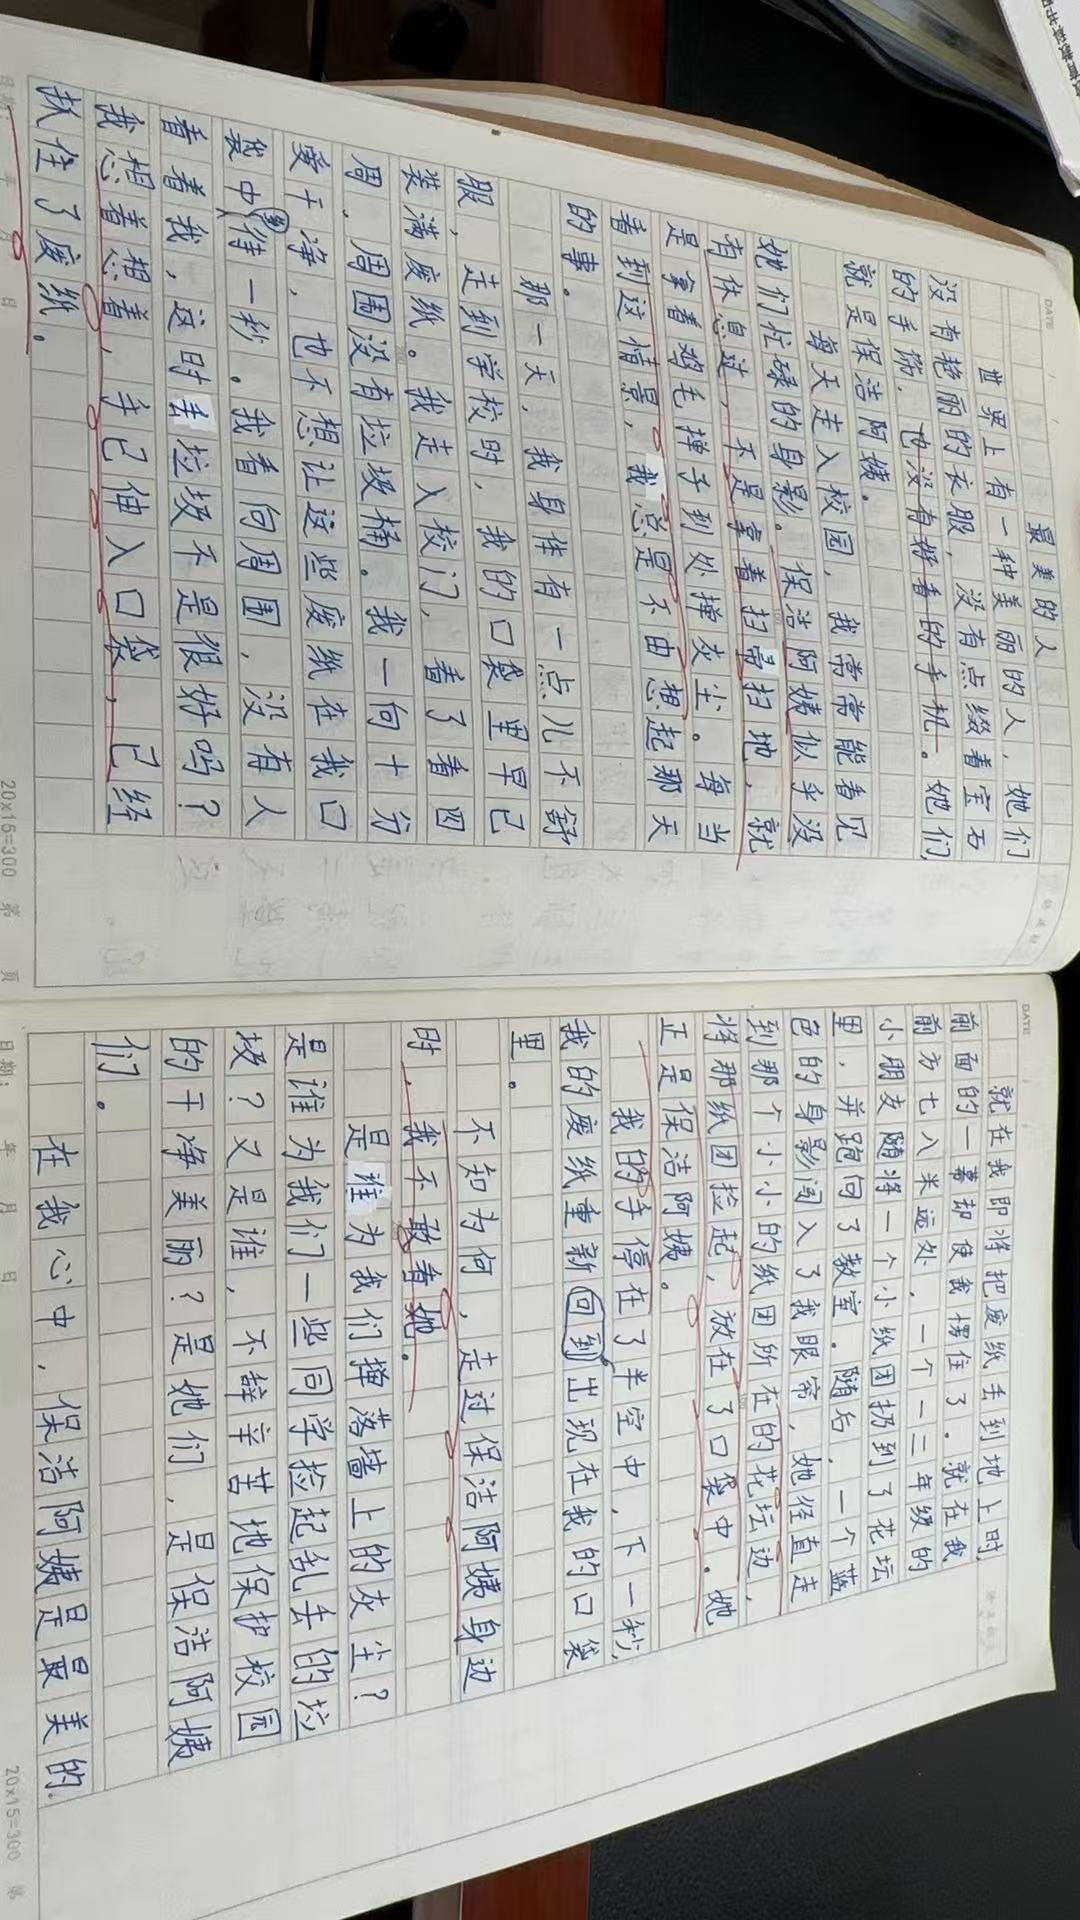 DATE
最美的人
世界上有一种美丽的人，她们
没有艳丽的衣服，没有点缀着宝石
的手饰，也没有好看的手机。她们
就是保洁阿姨。
每天走入校园，我常常能看见
她们忙碌的身影。保洁阿姨似乎没
有休息过，不是拿着扫帚扫地，就
是拿着鸡毛掸子到处掸灰尘。每当
看到这情景，我总是不由想起那天
的事。
那一天，我身体有一点儿不舒
服，走到学校时，我的口袋里早已
装满废纸。我走入校门，看了看四
周，周围没有垃圾桶。我一向十分
爱干净，也不想让这些废纸在我口
袋中多待一秒。我看向周围，没有人
看着我，这时丢垃圾不是很好吗？
我想着想着，手已伸入口袋，已经
抓住了废纸。
日期： 年 月 日
20x15=300 第 页
DATE
就在我即将把废纸丢到地上时，
前面的一幕却使我愣住了。就在我
前方七八米远处，一个一二年级的
小朋友随将一个小纸团扔到了花坛
里，并跑向了教室。随后，一个蓝
色的身影闯入了我眼帘，她径直走
到那个小小的纸团所在的花坛边，
将那纸团捡起，放在了口袋中。她
正是保洁阿姨。
我的手停在了半空中，下一秒，
我的废纸重新回到出现在我的口袋
里。
不知为何，走过保洁阿姨身边
时，我不敢看她。
是谁为我们掸落墙上的灰尘？
是谁为我们一些同学捡起乱丢的垃
圾？又是谁，不辞辛苦地保护校园
的干净美丽？是她们，是保洁阿姨
们。
在我心中，保洁阿姨是最美的.
日期： 年 月 日
20x15=300 第